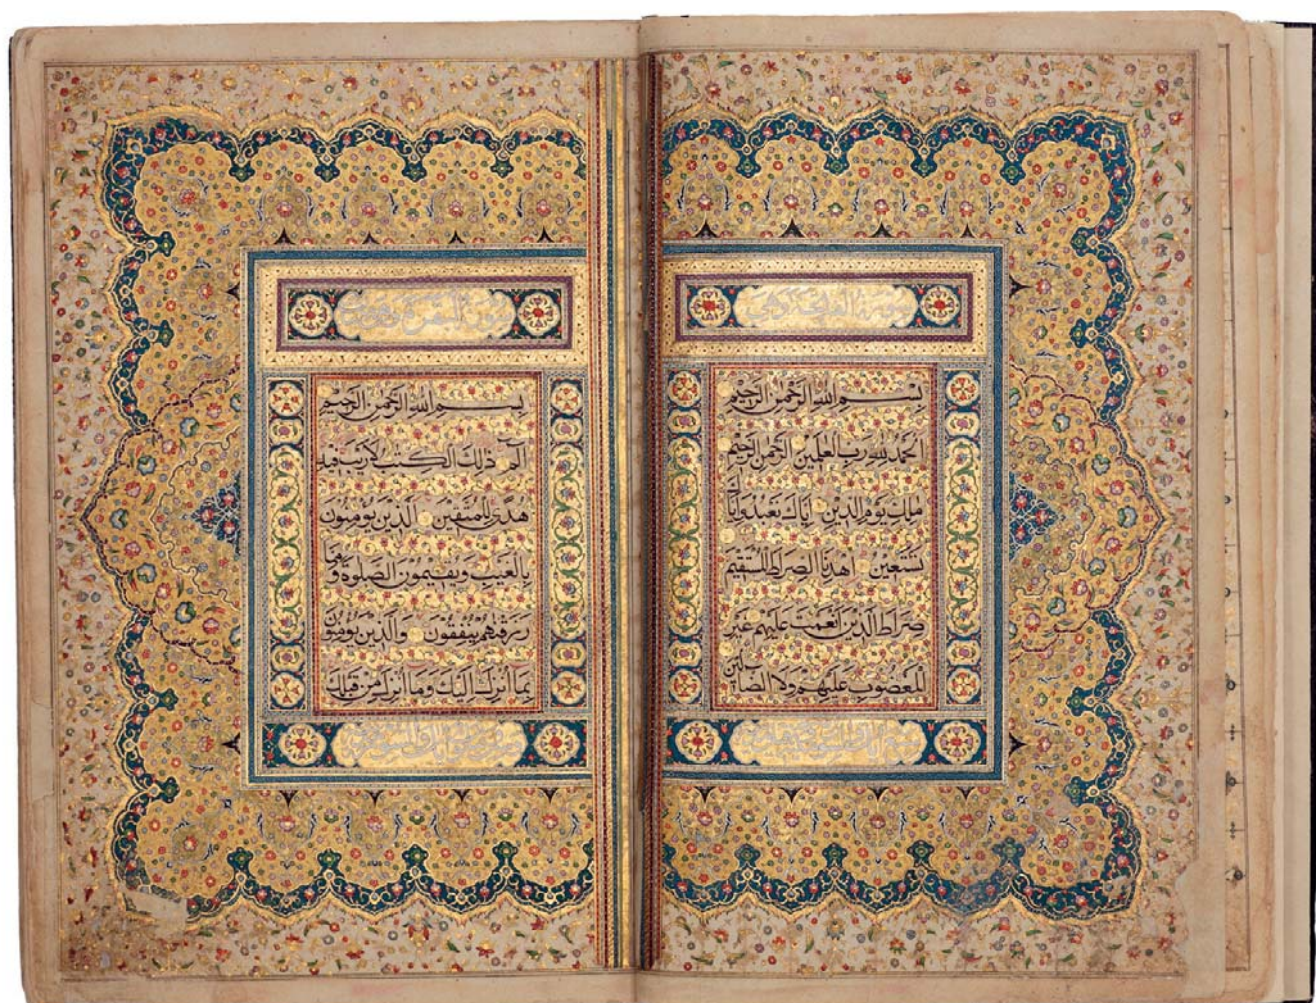 سورة الفاتحة
بسم الله الرحمن الرحيم
الحمد لله رب العلمين الرحمن الرحيم
ملك يوم الدين اياك نعبد واياك
نستعين اهدنا الصراط المستقيم
صراط الذين انعمت عليهم غير
المغضوب عليهم ولا الضالين
سورة البقرة
بسم الله الرحمن الرحيم
الم ذلك الكتب لا ريب فيه
هدى للمتقين الذين يؤمنون
بالغيب ويقيمون الصلوة ومما
رزقنهم ينفقون والذين يؤمنون
بما انزل اليك وما انزل من قبلك